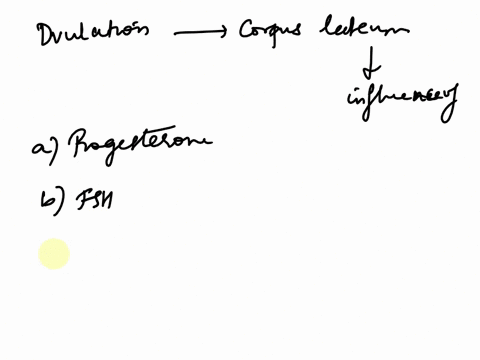 Ovulation → Corpus luteum
↓
influence of
a) Progesterone
b) FSH